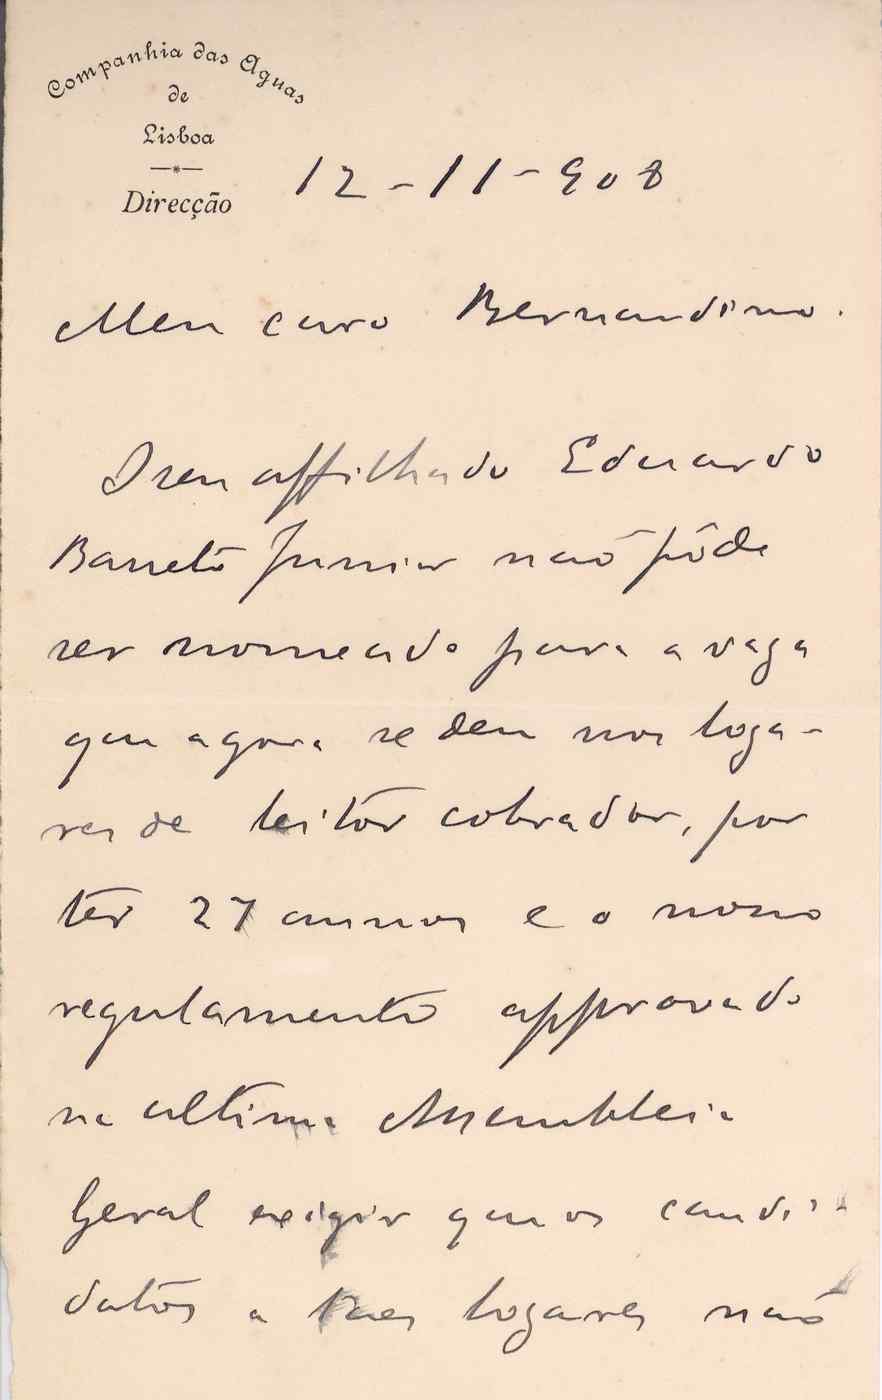 Companhia das Aguas
de
Lisboa
Direcção
12-11-908
Meu caro Bernardino.
O seu affilhado Eduardo
Barreto Junior não pôde
ser nomeado para a vaga
que agora se deu nos loga-
res de leitor cobrador, por
ter 27 annos e o nosso
regulamento approvado
na ultima Assembleia
Geral exigir que os candi-
datos a taes logares não